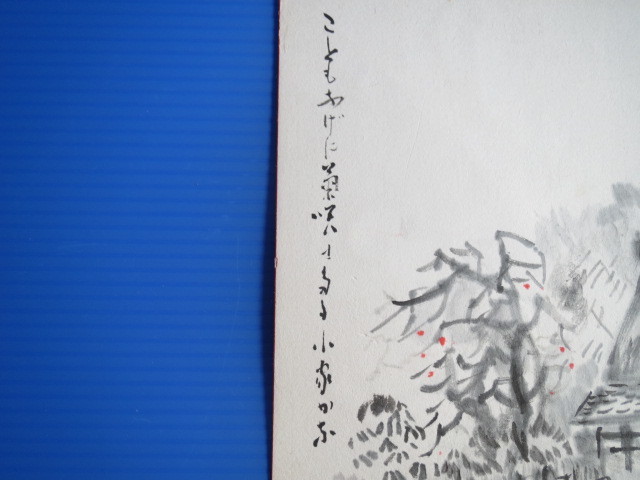 こともなげに菊咲せたる小家かな